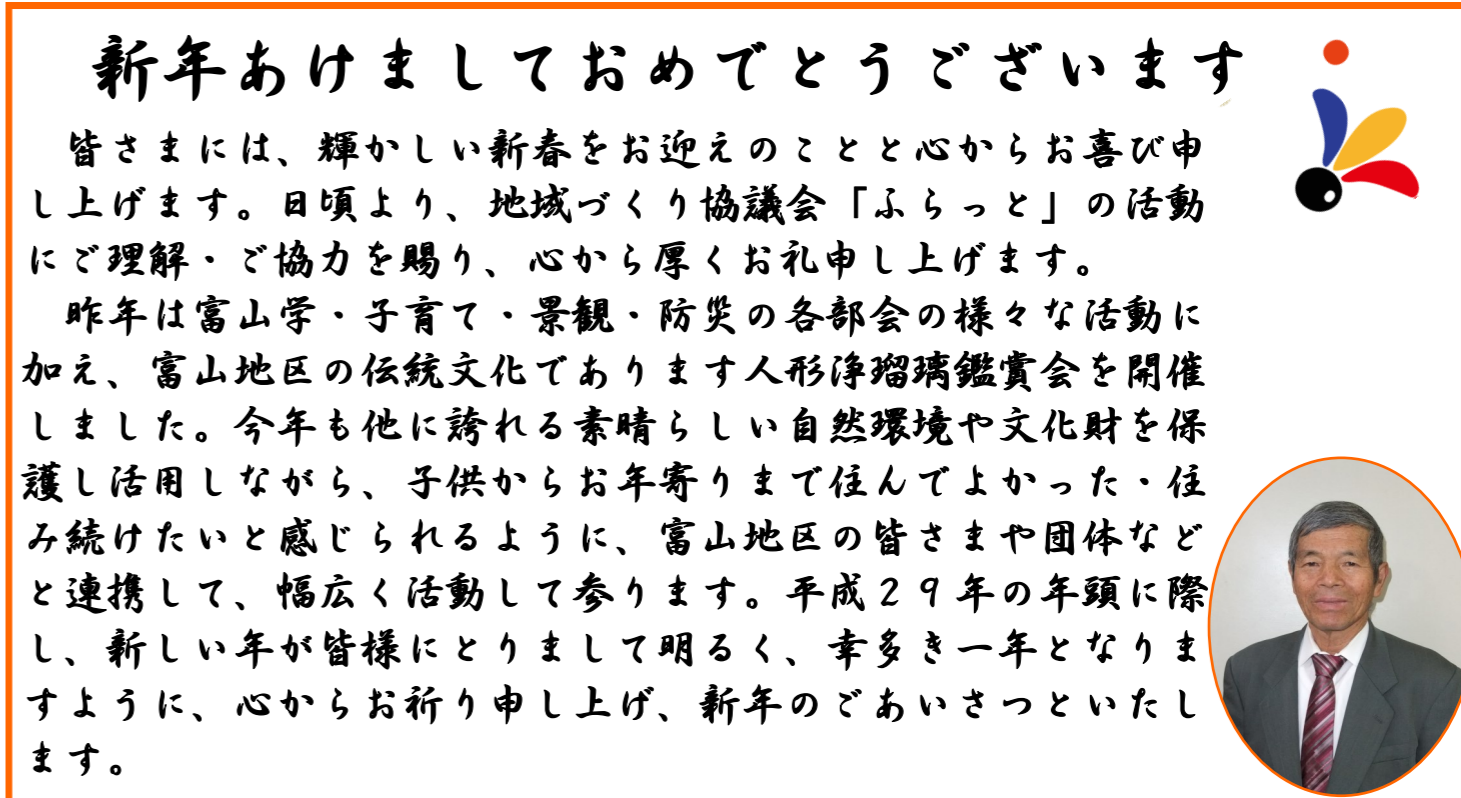 新年あけましておめでとうございます
皆さまには、輝かしい新春をお迎えのことと心からお喜び申
し上げます。日頃より、地域づくり協議会「ふらっと」の活動
にご理解・ご協力を賜り、心から厚くお礼申し上げます。
昨年は富山学・子育て・景観・防災の各部会の様々な活動に
加え、富山地区の伝統文化であります人形浄瑠璃鑑賞会を開催
しました。今年も他に誇れる素晴らしい自然環境や文化財を保
護し活用しながら、子供からお年寄りまで住んでよかった・住
み続けたいと感じられるように、富山地区の皆さまや団体など
と連携して、幅広く活動して参ります。平成２９年の年頭に際
し、新しい年が皆様にとりまして明るく、幸多き一年となりま
すように、心からお祈り申し上げ、新年のごあいさつといたし
ます。